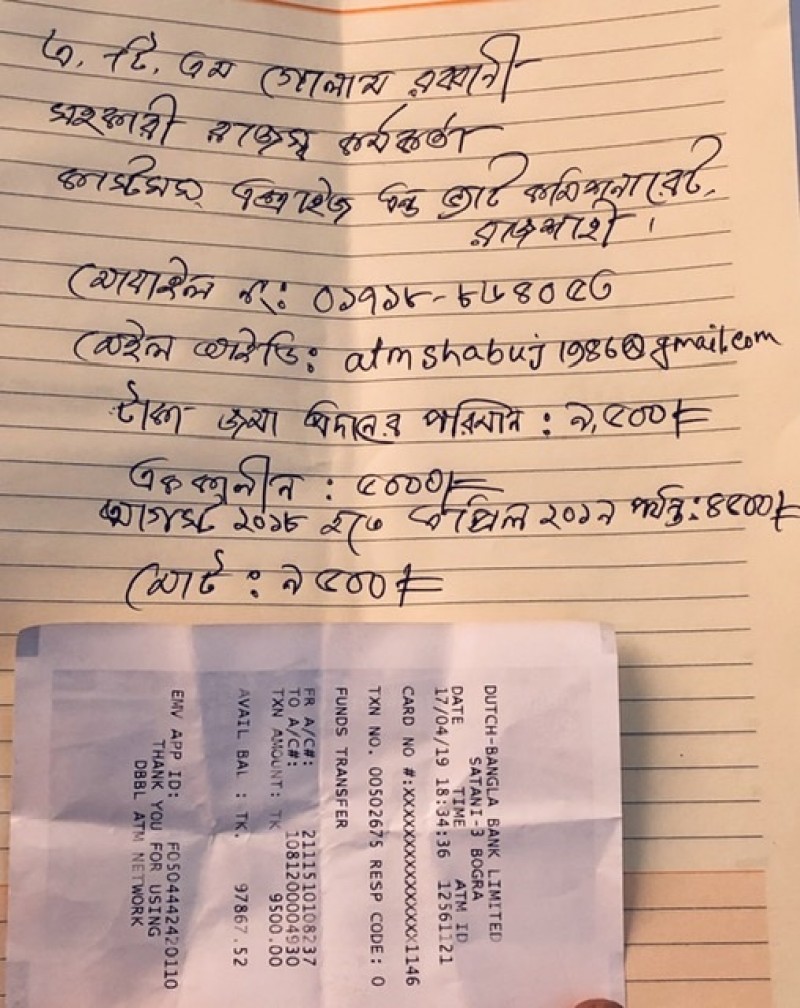 এ, টি, এম গোলাম রব্বানী
সহকারী রাজস্ব কর্মকর্তা
কাস্টমস্ এক্সাইজ এন্ড ভ্যাট কমিশনারেট,
রাজশাহী।
মোবাইল নং: ০১৭১৮-৮৬৪০৫৩
মেইল আইডি: atmshabuj1986@gmail.com
টাকা জমা প্রদানের পরিমান: ৯,৫০০/=
এককালীন: ৫০০০/=
আগস্ট ২০১৮ হতে এপ্রিল ২০১৯ পর্যন্ত: ৪৫০০/=
মোট: ৯৫০০/=
DUTCH-BANGLA BANK LIMITED
SATANI-3 BOGRA
DATE TIME ATM ID
17/04/19 18:34:36 12561121
CARD NO #:XXXXXXXXXXXXXXX1146
TXN NO. 00502675 RESP CODE: 0
FUNDS TRANSFER
FR A/C#: 2111510108237
TO A/C#: 1081200004930
TXN AMOUNT: TK 9500.00
AVAIL BAL : TK. 97867.52
EMV APP ID: F0504442420110
THANK YOU FOR USING
DBBL ATM NETWORK